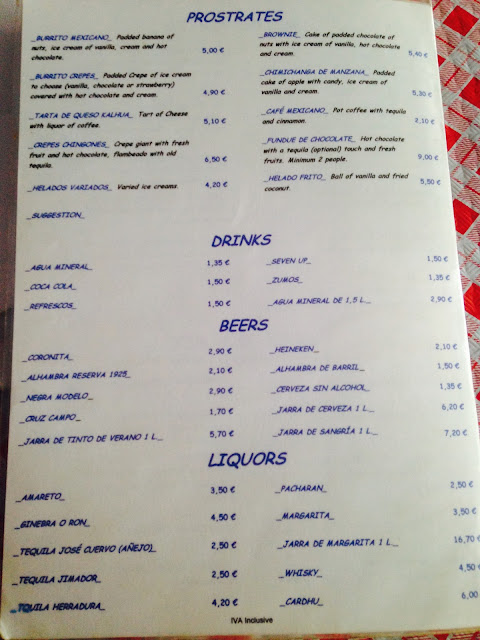 PROSTRATES
_BURRITO MEXICANO_ Padded banana of
nuts, ice cream of vanilla, cream and hot
chocolate. 5,00 €
_BURRITO CREPES_ Padded Crepe of ice cream
to choose (vanilla, chocolate or strawberry)
covered with hot chocolate and cream. 4,90 €
_TARTA DE QUESO KALHUA_ Tart of Cheese
with liquor of coffee. 5,10 €
_CREPES CHINGONES_ Crepe giant with fresh
fruit and hot chocolate, flambeado with old
tequila. 6,50 €
_HELADOS VARIADOS_ Varied ice creams. 4,20 €
_SUGGESTION_
_BROWNIE_ Cake of padded chocolate of
nuts with ice cream of vanilla, hot chocolate
and cream. 5,40 €
_CHIMICHANGA DE MANZANA_ Padded
cake of apple with candy, ice cream of
vanilla and cream. 5,30 €
_CAFÉ MEXICANO_ Pot coffee with tequila
and cinnamon. 2,10 €
_FUNDUE DE CHOCOLATE_ Hot chocolate
with a tequila (optional) touch and fresh
fruits. Minimum 2 people. 9,00 €
_HELADO FRITO_ Ball of vanilla and fried
coconut. 5,50 €
DRINKS
_AGUA MINERAL_ 1,35 €
_COCA COLA_ 1,50 €
_REFRESCOS_ 1,50 €
_SEVEN UP_ 1,50 €
_ZUMOS_ 1,35 €
_AGUA MINERAL DE 1,5 L._ 2,90 €
BEERS
_CORONITA_ 2,90 €
_ALHAMBRA RESERVA 1925_ 2,10 €
_NEGRA MODELO_ 2,90 €
_CRUZ CAMPO_ 1,70 €
_JARRA DE TINTO DE VERANO 1 L._ 5,70 €
_HEINEKEN_ 2,10 €
_ALHAMBRA DE BARRIL_ 1,50 €
_CERVEZA SIN ALCOHOL_ 1,35 €
_JARRA DE CERVEZA 1 L._ 6,20 €
_JARRA DE SANGRÍA 1 L._ 7,20 €
LIQUORS
_AMARETO_ 3,50 €
_GINEBRA O RON_ 4,50 €
_TEQUILA JOSÉ CUERVO (AÑEJO)_ 2,50 €
_TEQUILA JIMADOR_ 2,50 €
_TQUILA HERRADURA_ 4,20 €
_PACHARAN_ 2,50 €
_MARGARITA_ 3,50 €
_JARRA DE MARGARITA 1 L._ 16,70 €
_WHISKY_ 4,50 €
_CARDHU_ 6,00
IVA Inclusive